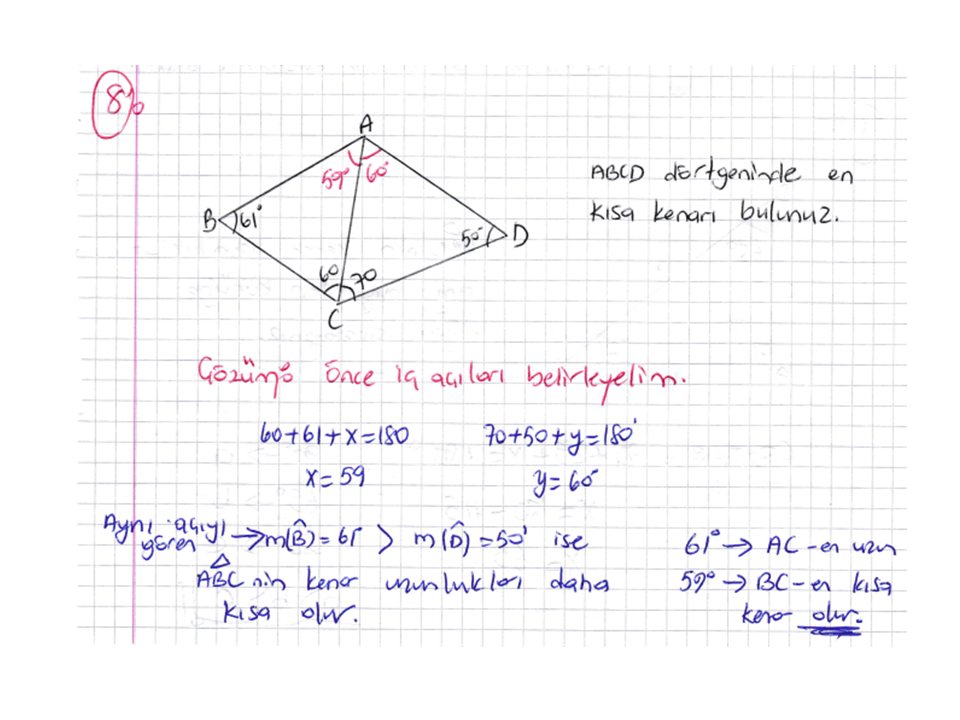 8)
A
59° 60°
B 61°
50° D
60 70
C
ABCD dörtgeninde en
kısa kenarı bulunuz.
Çözüm: Önce iç açıları belirleyelim.
60+61+x=180
x=59
70+50+y=180°
y=60°
Aynı açıyı gören → m(B̂)=61° > m(D̂)=50° ise
ABC nin kenar uzunlukları daha
kısa olur.
61° → AC-en uzun
59° → BC-en kısa
kenar olur.